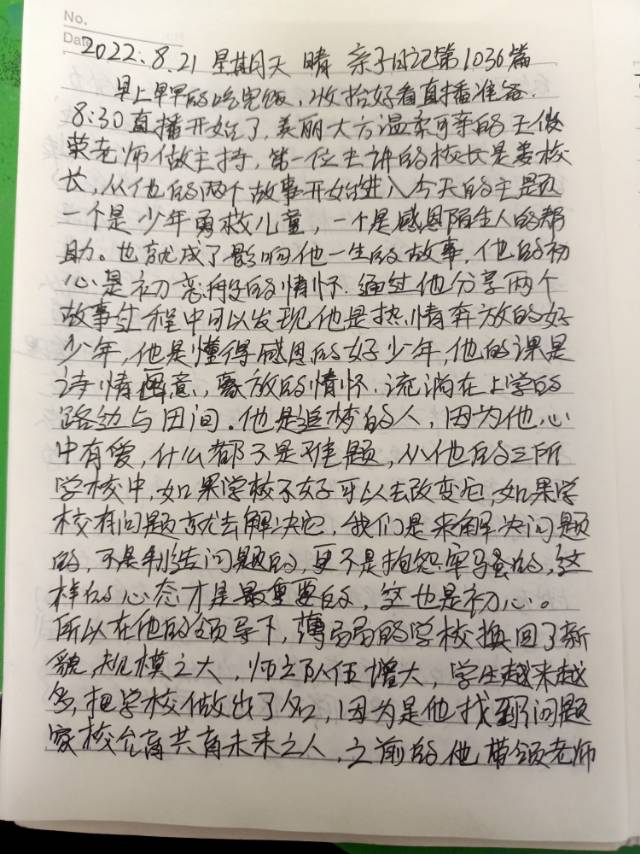 No.
Date
2022.8.21 星期天 晴 亲子日记第1036篇
早上早早的吃完饭，收拾好看直播准备.
8:30直播开始了，美丽大方温柔可亲的王俊
荣老师做主持，第一位主讲的校长是姜校
长，从他的两个故事开始进入今天的主题
一个是少年勇救儿童，一个是感恩陌生人的帮
助。也就成了影响他一生的故事，他的初
心是初高段的情怀.通过他分享两个
故事过程中可以发现他是热情奔放的好
少年，他是懂得感恩的好少年，他的课是
诗情画意，豪放的情怀.流淌在上学的
路边与田间。他是追梦的人，因为他心
中有爱，什么都不是难题，从他的三所
学校中，如果学校不好可以去改变它，如果学
校有问题就去解决它，我们是来解决问题
的，不是制造问题的，更不是抱怨牢骚的，这
样的心态才是最重要的，这也是初心。
所以在他的领导下，薄弱的学校换回了新
貌，规模之大，师资队伍增大，学生越来越
多，把学校做出了名，因为是他找到问题
家校合育共育未来之人，之前的他带领老师